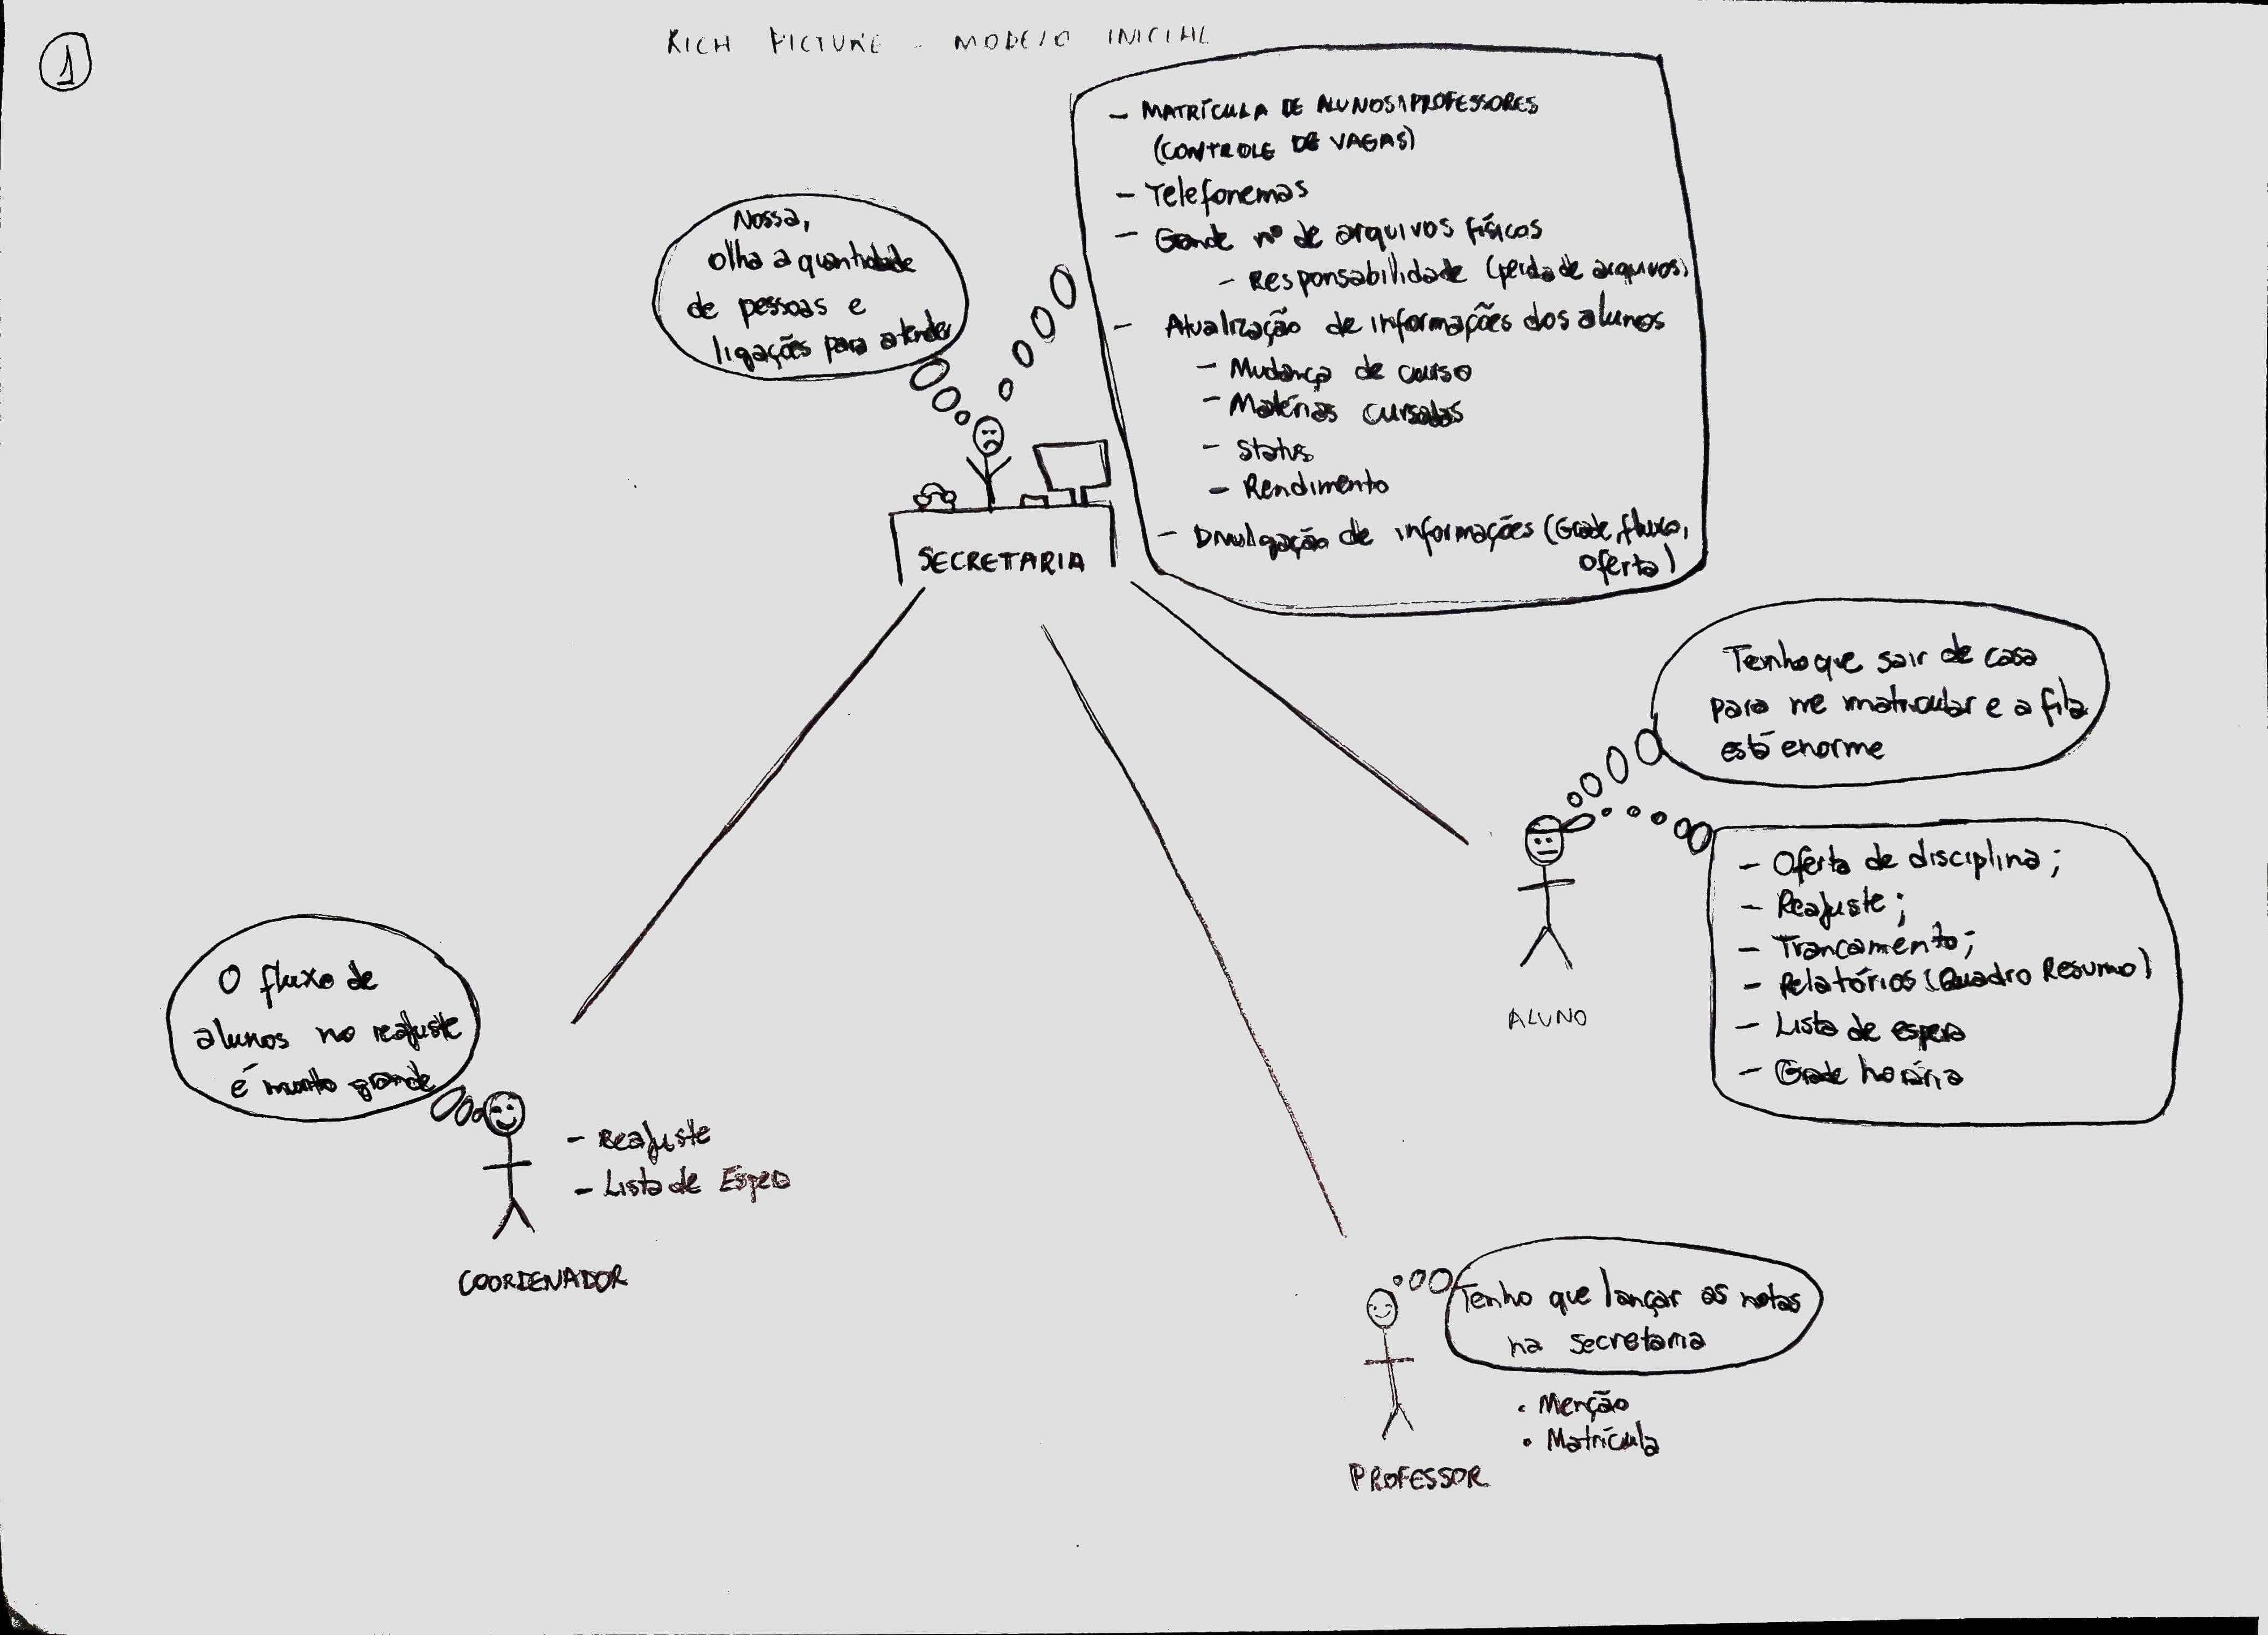 1
RICH PICTURE - MODELO INICIAL
- MATRÍCULA DE ALUNOS\PROFESSORES
(CONTROLE DE VAGAS)
- Telefonemas
- Grande nº de arquivos físicos
- Responsabilidade (perda de arquivos)
- Atualização de informações dos alunos
- Mudança de curso
- Matérias cursadas
- Status
- Rendimento
- Divulgação de informações (Grade, fluxo,
oferta)
Nossa,
olha a quantidade
de pessoas e
ligações para atender
SECRETARIA
Tenho que sair de casa
para me matricular e a fila
está enorme
- Oferta de disciplina;
- Reajuste;
- Trancamento;
- Relatórios (Quadro Resumo)
- Lista de espera
- Grade horária
ALUNO
O fluxo de
alunos no reajuste
é muito grande
- Reajuste
- Lista de Espera
COORDENADOR
Tenho que lançar as notas
na secretaria
• Menção
• Matrícula
PROFESSOR